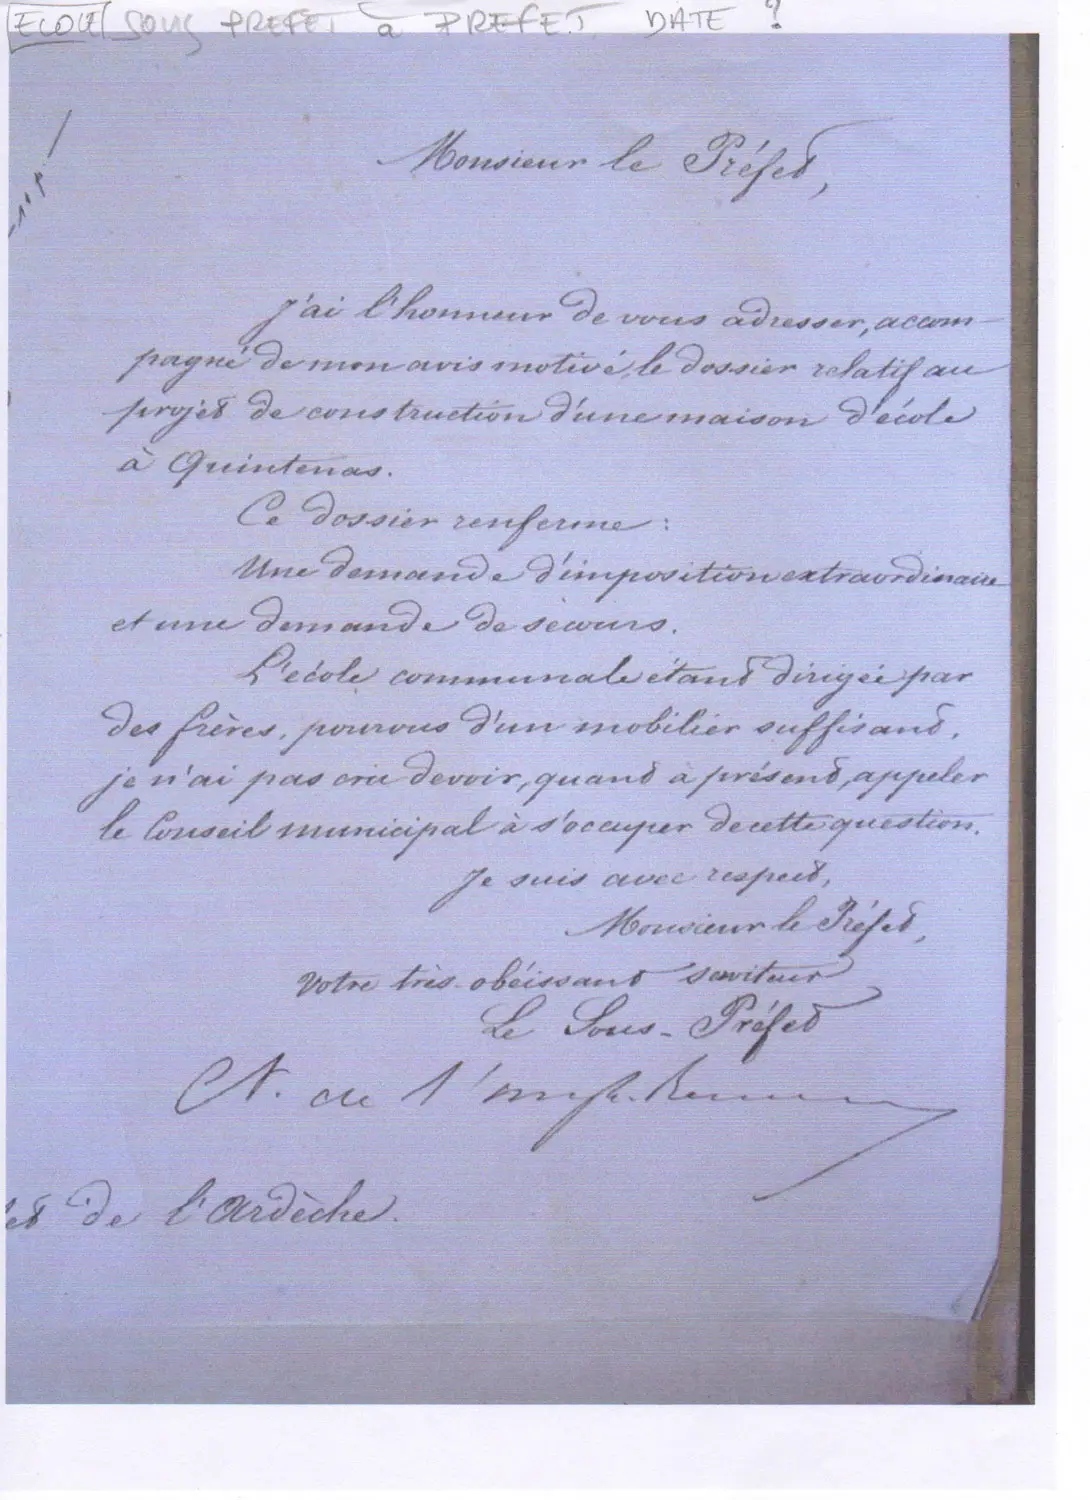 ECOLE SOUS PREFET à PREFET DATE ?
Monsieur le Préfet,
J'ai l'honneur de vous adresser, accom-
pagné de mon avis motivé, le dossier relatif au
projet de construction d'une maison d'école
à Quintenas.
Ce dossier renferme :
Une demande d'imposition extraordinaire
et une demande de secours.
L'école communale étant dirigée par
des frères, pourvus d'un mobilier suffisant,
je n'ai pas cru devoir, quant à présent, appeler
le Conseil municipal à s'occuper de cette question.
Je suis avec respect,
Monsieur le Préfet,
Votre très-obéissant serviteur
Le Sous-Préfet
de l'Ardèche.